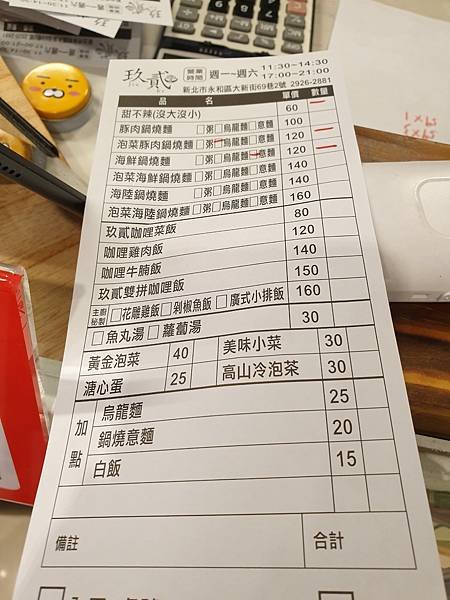 玖貳 營業時間 週一~週六 11:30~14:30
17:00~21:00
新北市永和區大新街69巷2號 2926-2881
品 名 單價 數量
甜不辣(沒大沒小) 60
豚肉鍋燒麵 □粥□烏龍麵□意麵 100
泡菜豚肉鍋燒麵 □粥□烏龍麵□意麵 120
海鮮鍋燒麵 □粥□烏龍麵□意麵 120
泡菜海鮮鍋燒麵 □粥□烏龍麵□意麵 140
海陸鍋燒麵 □粥□烏龍麵□意麵 140
泡菜海陸鍋燒麵 □粥□烏龍麵□意麵 160
玖貳咖哩菜飯 80
咖哩雞肉飯 120
咖哩牛腩飯 140
玖貳雙拼咖哩飯 150
主廚秘製 □花雕雞飯□剁椒魚飯□廣式小排飯 160
□魚丸湯□蘿蔔湯 30
黃金泡菜 40 美味小菜 30
溏心蛋 25 高山冷泡茶 30
加點
烏龍麵 25
鍋燒意麵 20
白飯 15
備註 合計